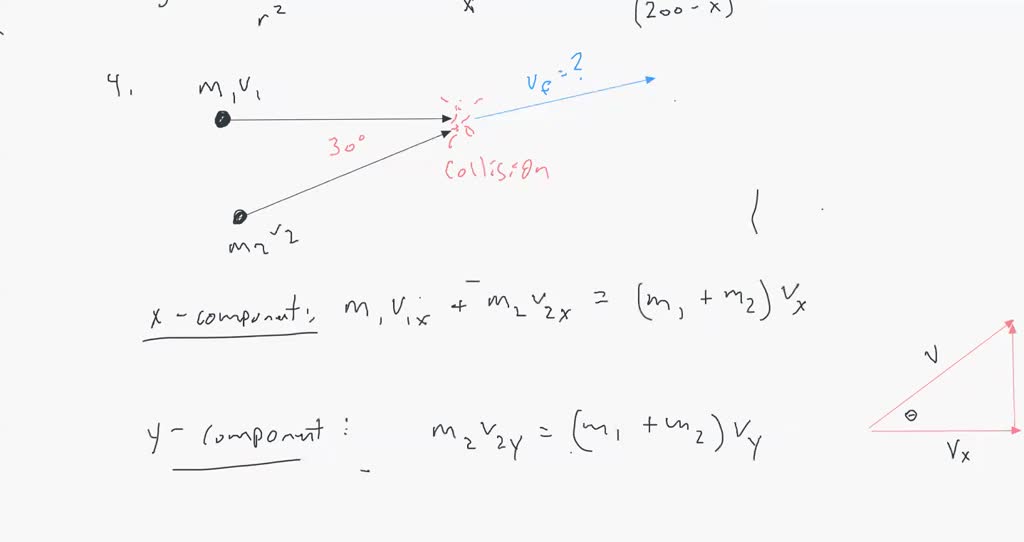 r²
x
(200 - x)
4.
m₁v₁
v_f = ?
30°
Collision
m₂v₂
x - component: m₁v₁ₓ + m₂v₂ₓ = (m₁ + m₂) vₓ
v
θ
y - component : m₂v₂y = (m₁ + m₂) vy
Vₓ